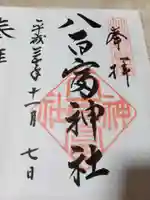 奉拝
八百富神社
平成三十年十一月七日